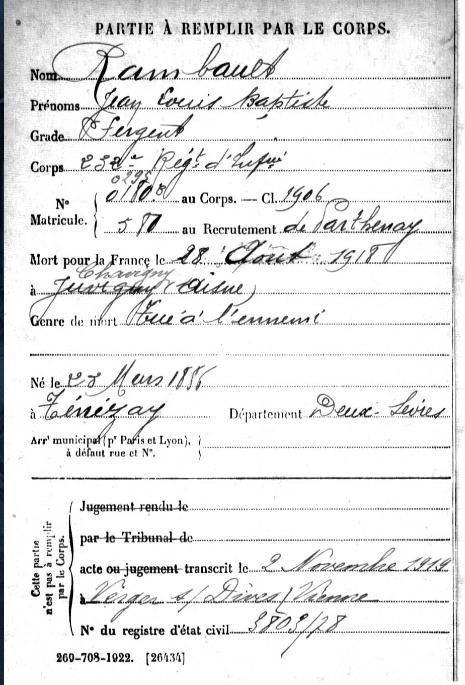 PARTIE À REMPLIR PAR LE CORPS.
Nom Rambault
Prénoms Jean Louis Baptiste
Grade Sergent
Corps 232e Régt d'Infie
0295
N° Matricule. 01808 au Corps. — Cl. 1906
580 au Recrutement de Parthenay
Mort pour la France le 28 Août 1918
Chavigny
à Juvigny (Aisne)
Genre de mort Tué à l'ennemi
Né le 23 Mars 1886
à Thénezay Département Deux-Sèvres
Arrt municipal (pr Paris et Lyon),
à défaut rue et N°.
Cette partie n'est pas à remplir par le Corps.
Jugement rendu le
par le Tribunal de
acte ou jugement transcrit le 2 Novembre 1919
à Verger s/ Dives) Vienne
N° du registre d'état civil 3803/78
269-708-1922. [26434]